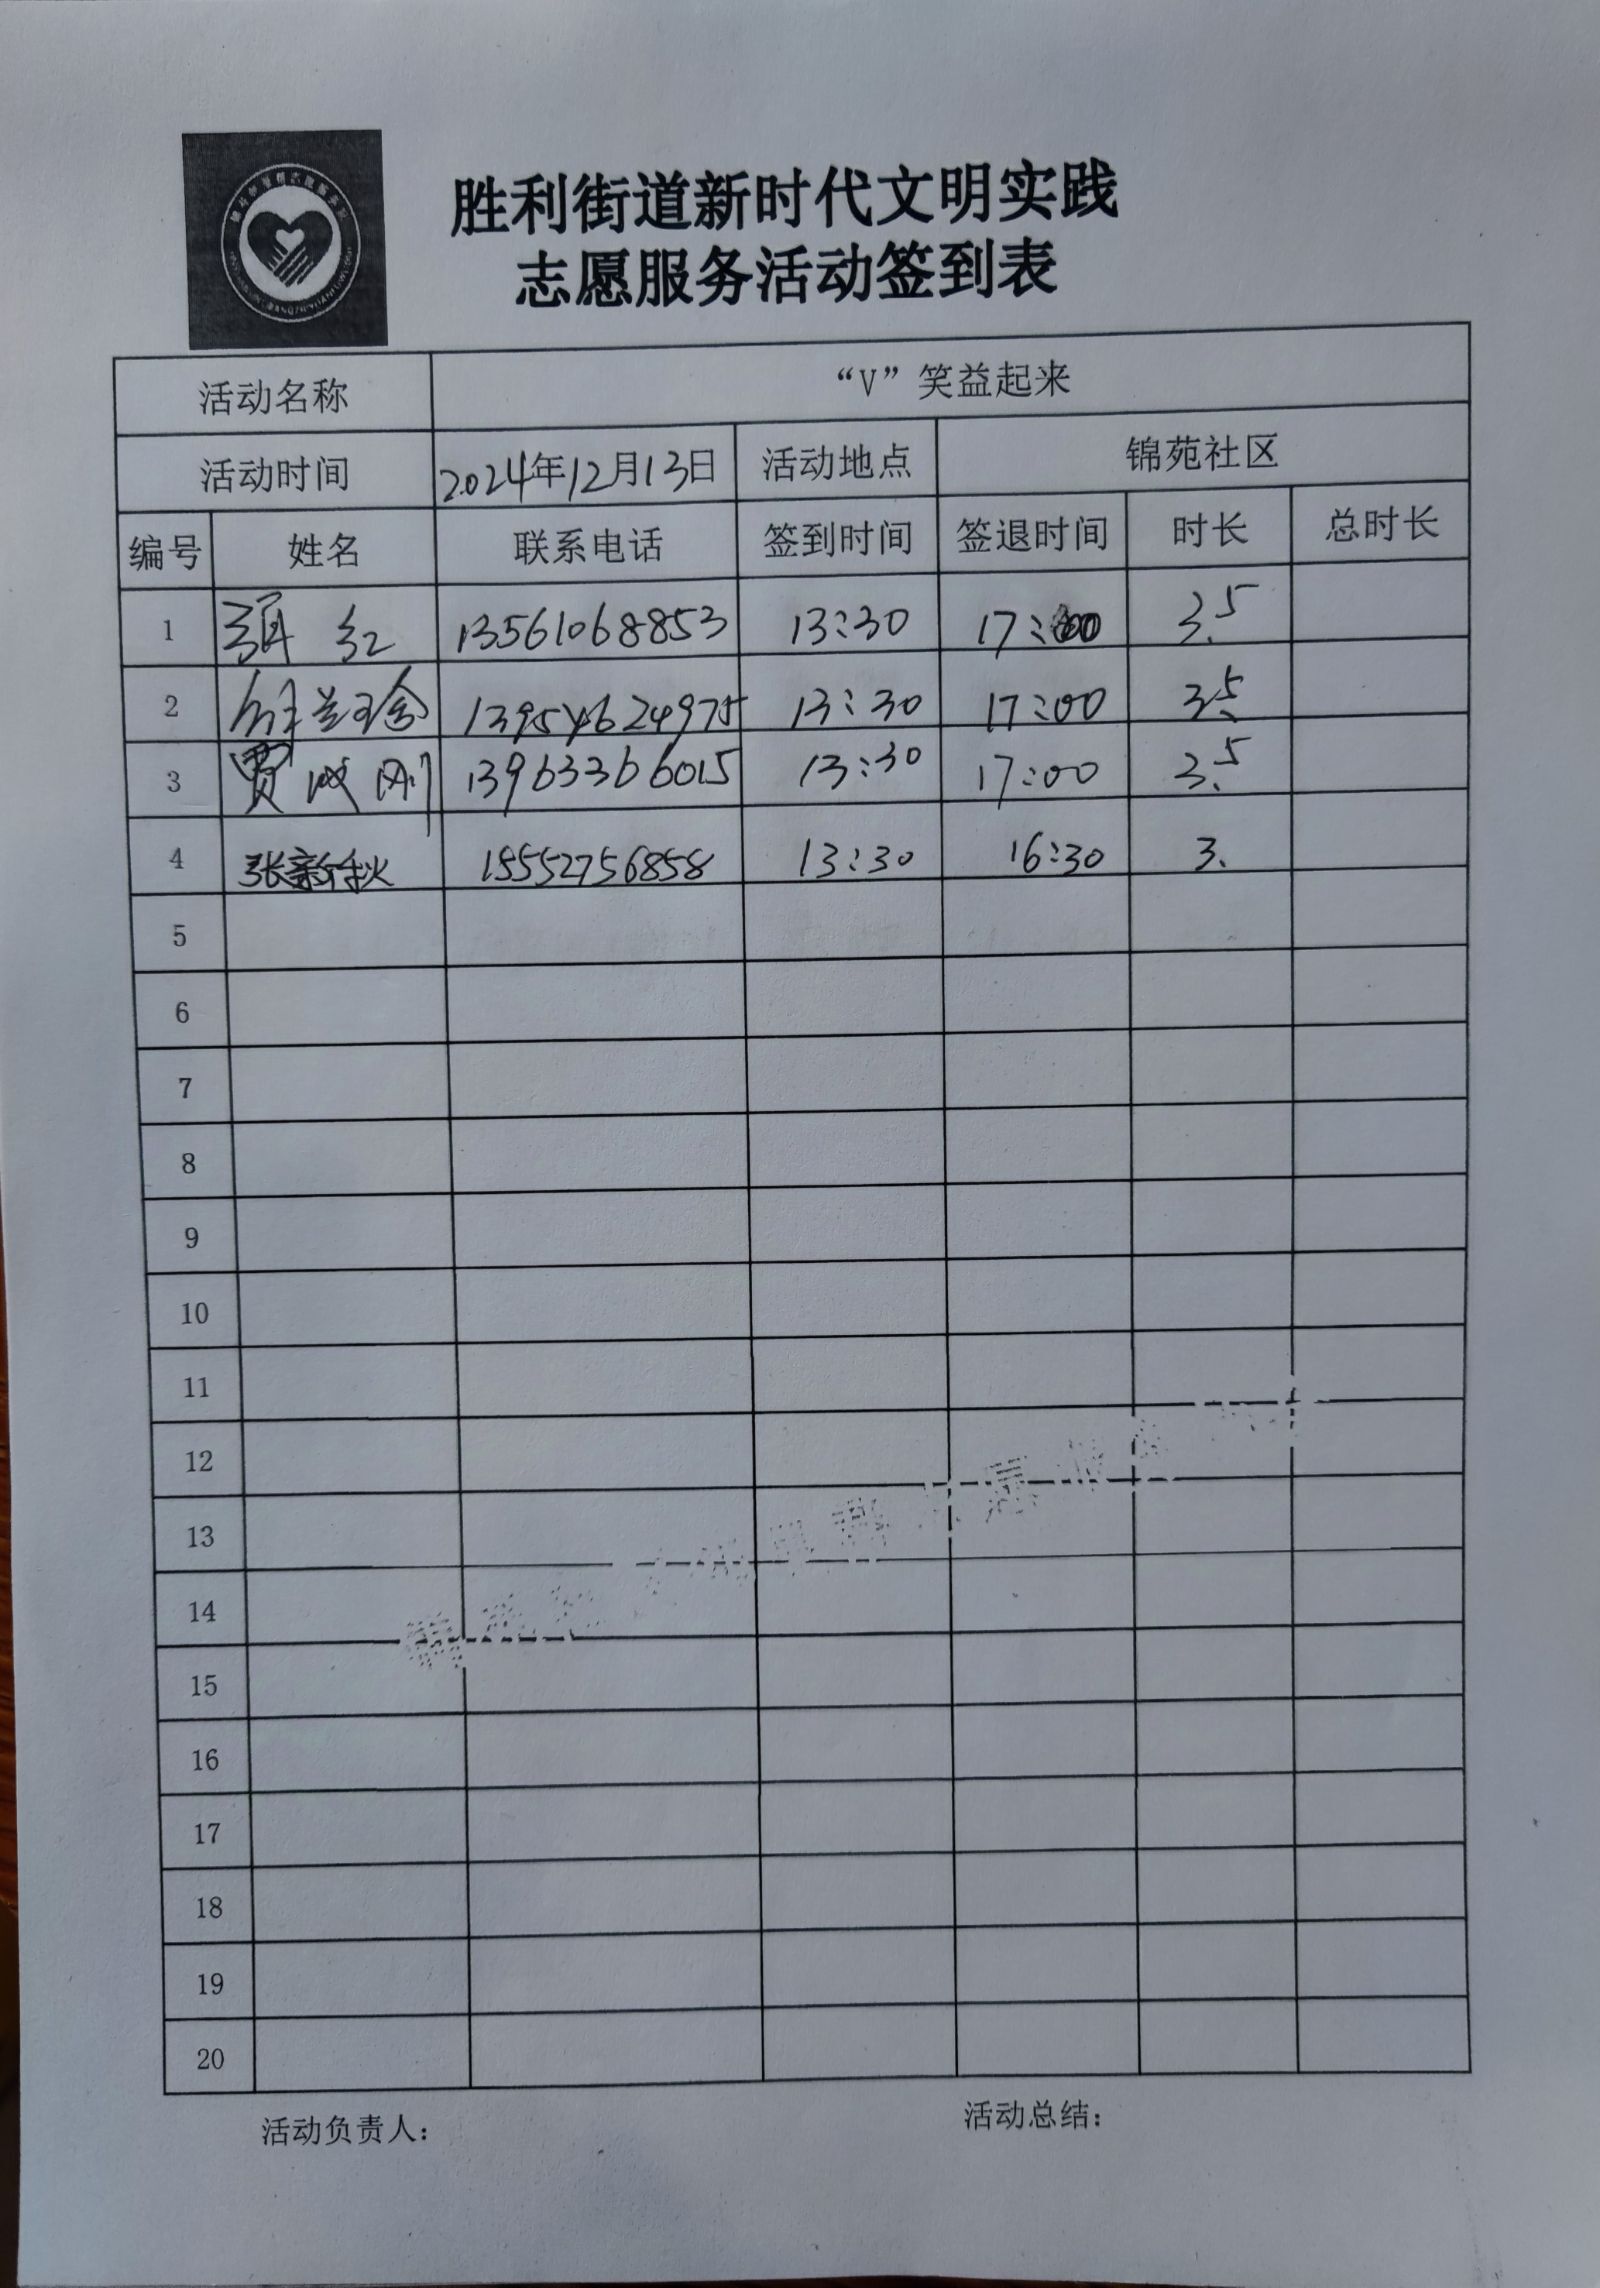 胜利街道新时代文明实践
志愿服务活动签到表
活动名称 “V”笑益起来
活动时间 2024年12月13日 活动地点 锦苑社区
编号 姓名 联系电话 签到时间 签退时间 时长 总时长
1 红 13561068853 13:30 17:00 3.5
2 13954624975 13:30 17:00 3.5
3 贾成刚 13963366015 13:30 17:00 3.5
4 张新秋 15552756858 13:30 16:30 3.
5
6
7
8
9
10
11
12
13
14
15
16
17
18
19
20
活动负责人： 活动总结：